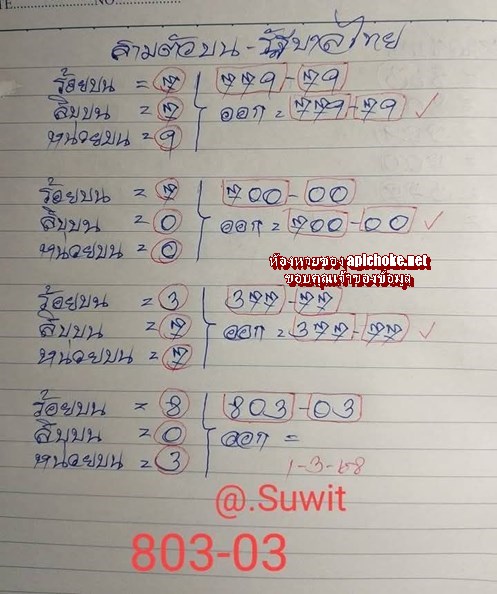 NO.
สามตัวบน - รัฐบาลไทย
ร้อยบน = 7 779 - 79
สิบบน = 7 ออก = 779 - 79 ✓
หน่วยบน = 9
ร้อยบน = 7 700 - 00
สิบบน = 0 ออก = 700 - 00 ✓
หน่วยบน = 0
ห้องหวยของ apichoke.net
ขอบคุณเจ้าของข้อมูล
ร้อยบน = 3 377 - 77
สิบบน = 7 ออก = 377 - 77 ✓
หน่วยบน = 7
ร้อยบน = 8 803 - 03
สิบบน = 0 ออก =
หน่วยบน = 3 1-3-68
@.Suwit
803-03